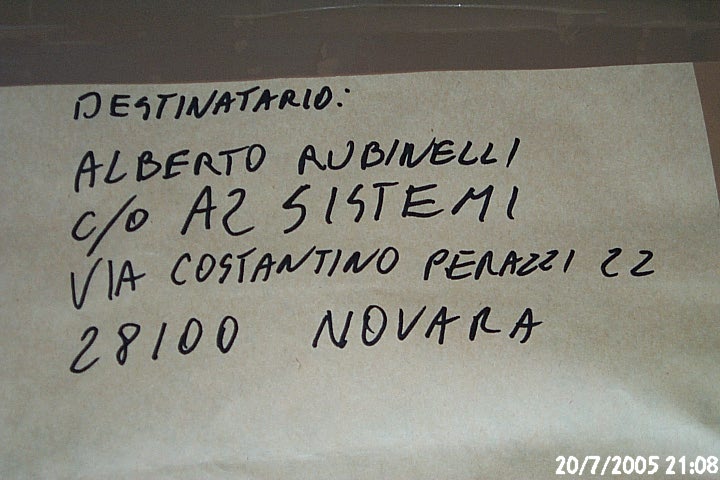 DESTINATARIO:
ALBERTO RUBINELLI
C/O A2 SISTEMI
VIA COSTANTINO PERAZZI 22
28100 NOVARA
20/7/2005 21:08